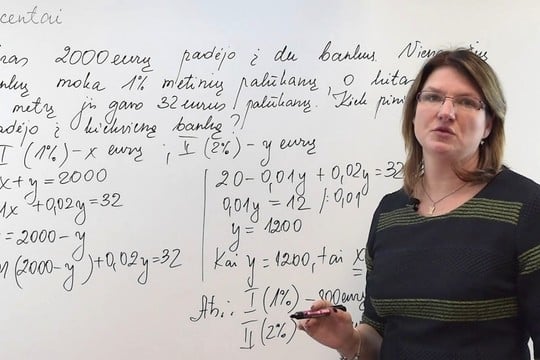 centai
ras 2000 eurų padėjo į du bankus. Vieno
nkų moka 1% metinių palūkanų, o kitas
metų jis gavo 32 eurus palūkanų. Kiek pini
adėjo į kiekvieną banką?
I (1%) - x eurų ; II (2%) - y eurų
x + y = 2000
1x + 0,02y = 32
= 2000 - y
01(2000 - y) + 0,02y = 32
20 - 0,01y + 0,02y = 32
0,01y = 12 /:0,01
y = 1200
Kai y = 1200, tai x
Ats.: I (1%) - 800 eurų
II (2%)